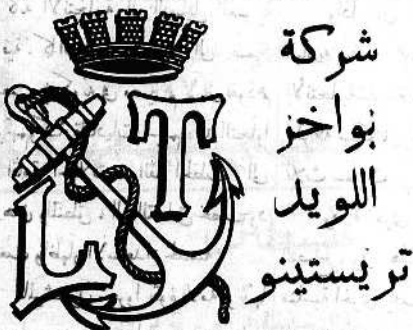 شركة
بواخز
اللويد
تريستينو
L T